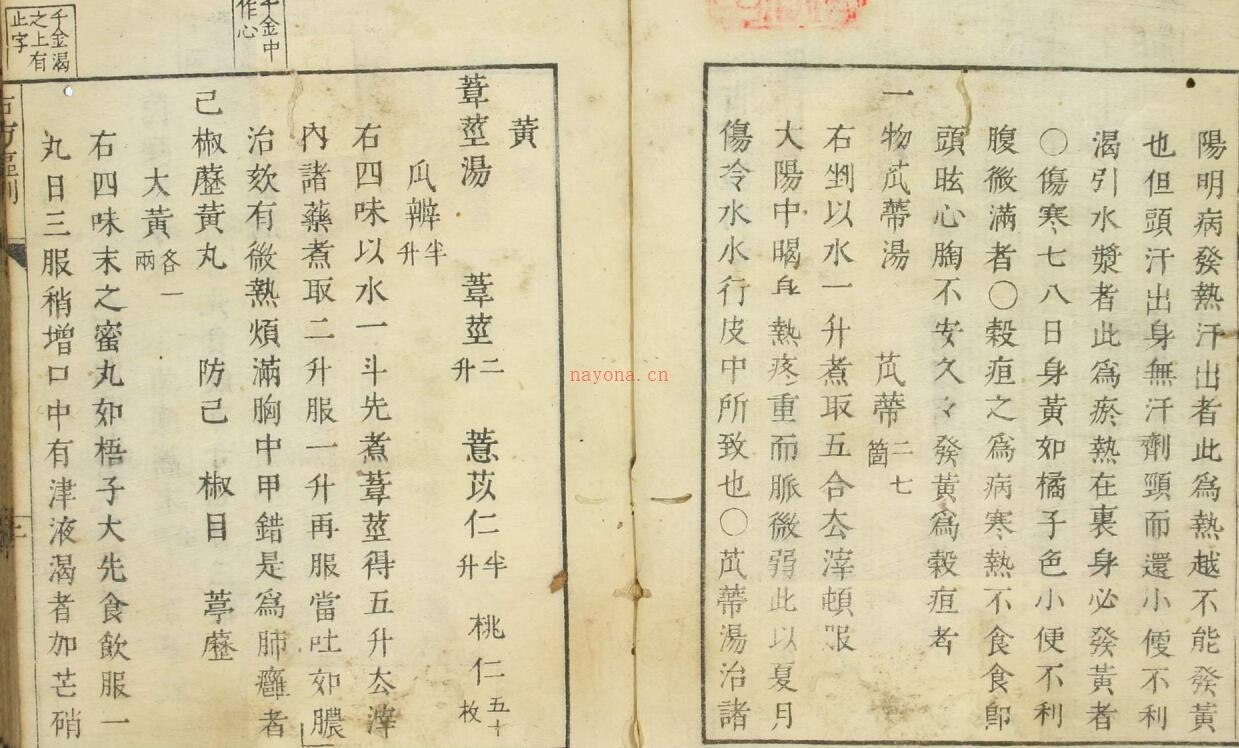 陽明病發熱汗出者此爲熱越不能發黃
也但頭汗出身無汗劑頸而還小便不利
渴引水漿者此爲瘀熱在裏身必發黃者
○傷寒七八日身黃如橘子色小便不利
腹微滿者○穀疸之爲病寒熱不食食卽
頭眩心胸不安久々發黃爲穀疸者
一物苽蒂湯 苽蒂二七箇
右剉以水一升煮取五合去滓頓服
大陽中暍身熱疼重而脈微弱此以夏月
傷冷水水行皮中所致也○苽蒂湯治諸
黃
葦莖湯 葦莖二升 薏苡仁半升 桃仁五十枚
瓜瓣半升
右四味以水一斗先煮葦莖得五升去滓
內諸藥煮取二升服一升再服當吐如膿
治欬有微熱煩滿胸中甲錯是爲肺癰者
己椒藶黃丸 防己 椒目 葶藶
大黃各一兩
右四味末之蜜丸如梧子大先食飲服一
丸日三服稍增口中有津液渴者加芒硝
千金中
作心
千金渴
之上有
止字
nayona.cn